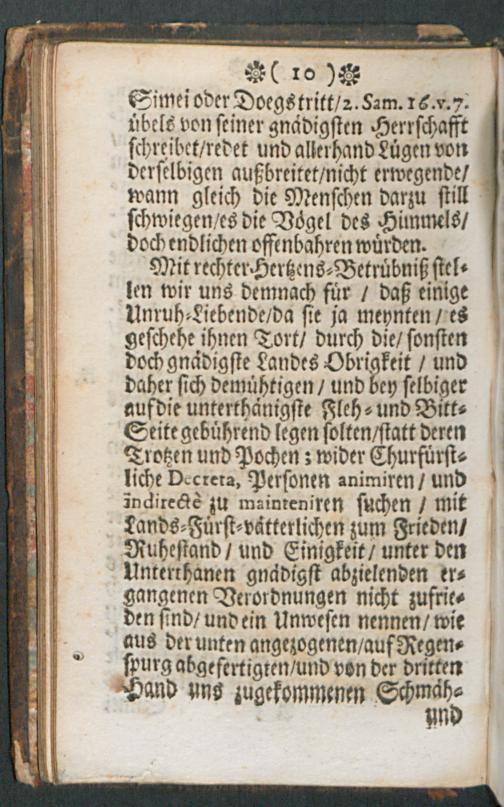 ❁( 10 )❁
Simei oder Doegs tritt/2. Sam. 16. v. 7.
übels von seiner gnädigsten Herrschafft
schreibet/redet und allerhand Lügen von
derselbigen außbreitet/nicht erwegende/
wann gleich die Menschen darzu still
schwiegen/es die Vögel des Himmels/
doch endlichen offenbahren würden.
Mit rechter Hertzens-Betrübniß stel-
len wir uns demnach für / daß einige
Unruh-Liebende/da sie ja meynten/ es
geschehe ihnen Tort/ durch die/ sonsten
doch gnädigste Landes Obrigkeit / und
daher sich demühtigen / und bey selbiger
auf die unterthänigste Fleh- und Bitt-
Seite gebührend legen solten/statt deren
Trotzen und Pochen; wider Churfürst-
liche Decreta, Personen animiren / und
indirectè zu mainteniren suchen / mit
Lands-Fürst-vätterlichen zum Frieden/
Ruhestand / und Einigkeit / unter den
Unterthanen gnädigst abzielenden er-
gangenen Verordnungen nicht zufrie-
den sind/ und ein Unwesen nennen/ wie
aus der unten angezogenen/auf Regen-
spurg abgefertigten/und von der dritten
Hand uns zugekommenen Schmäh-
und